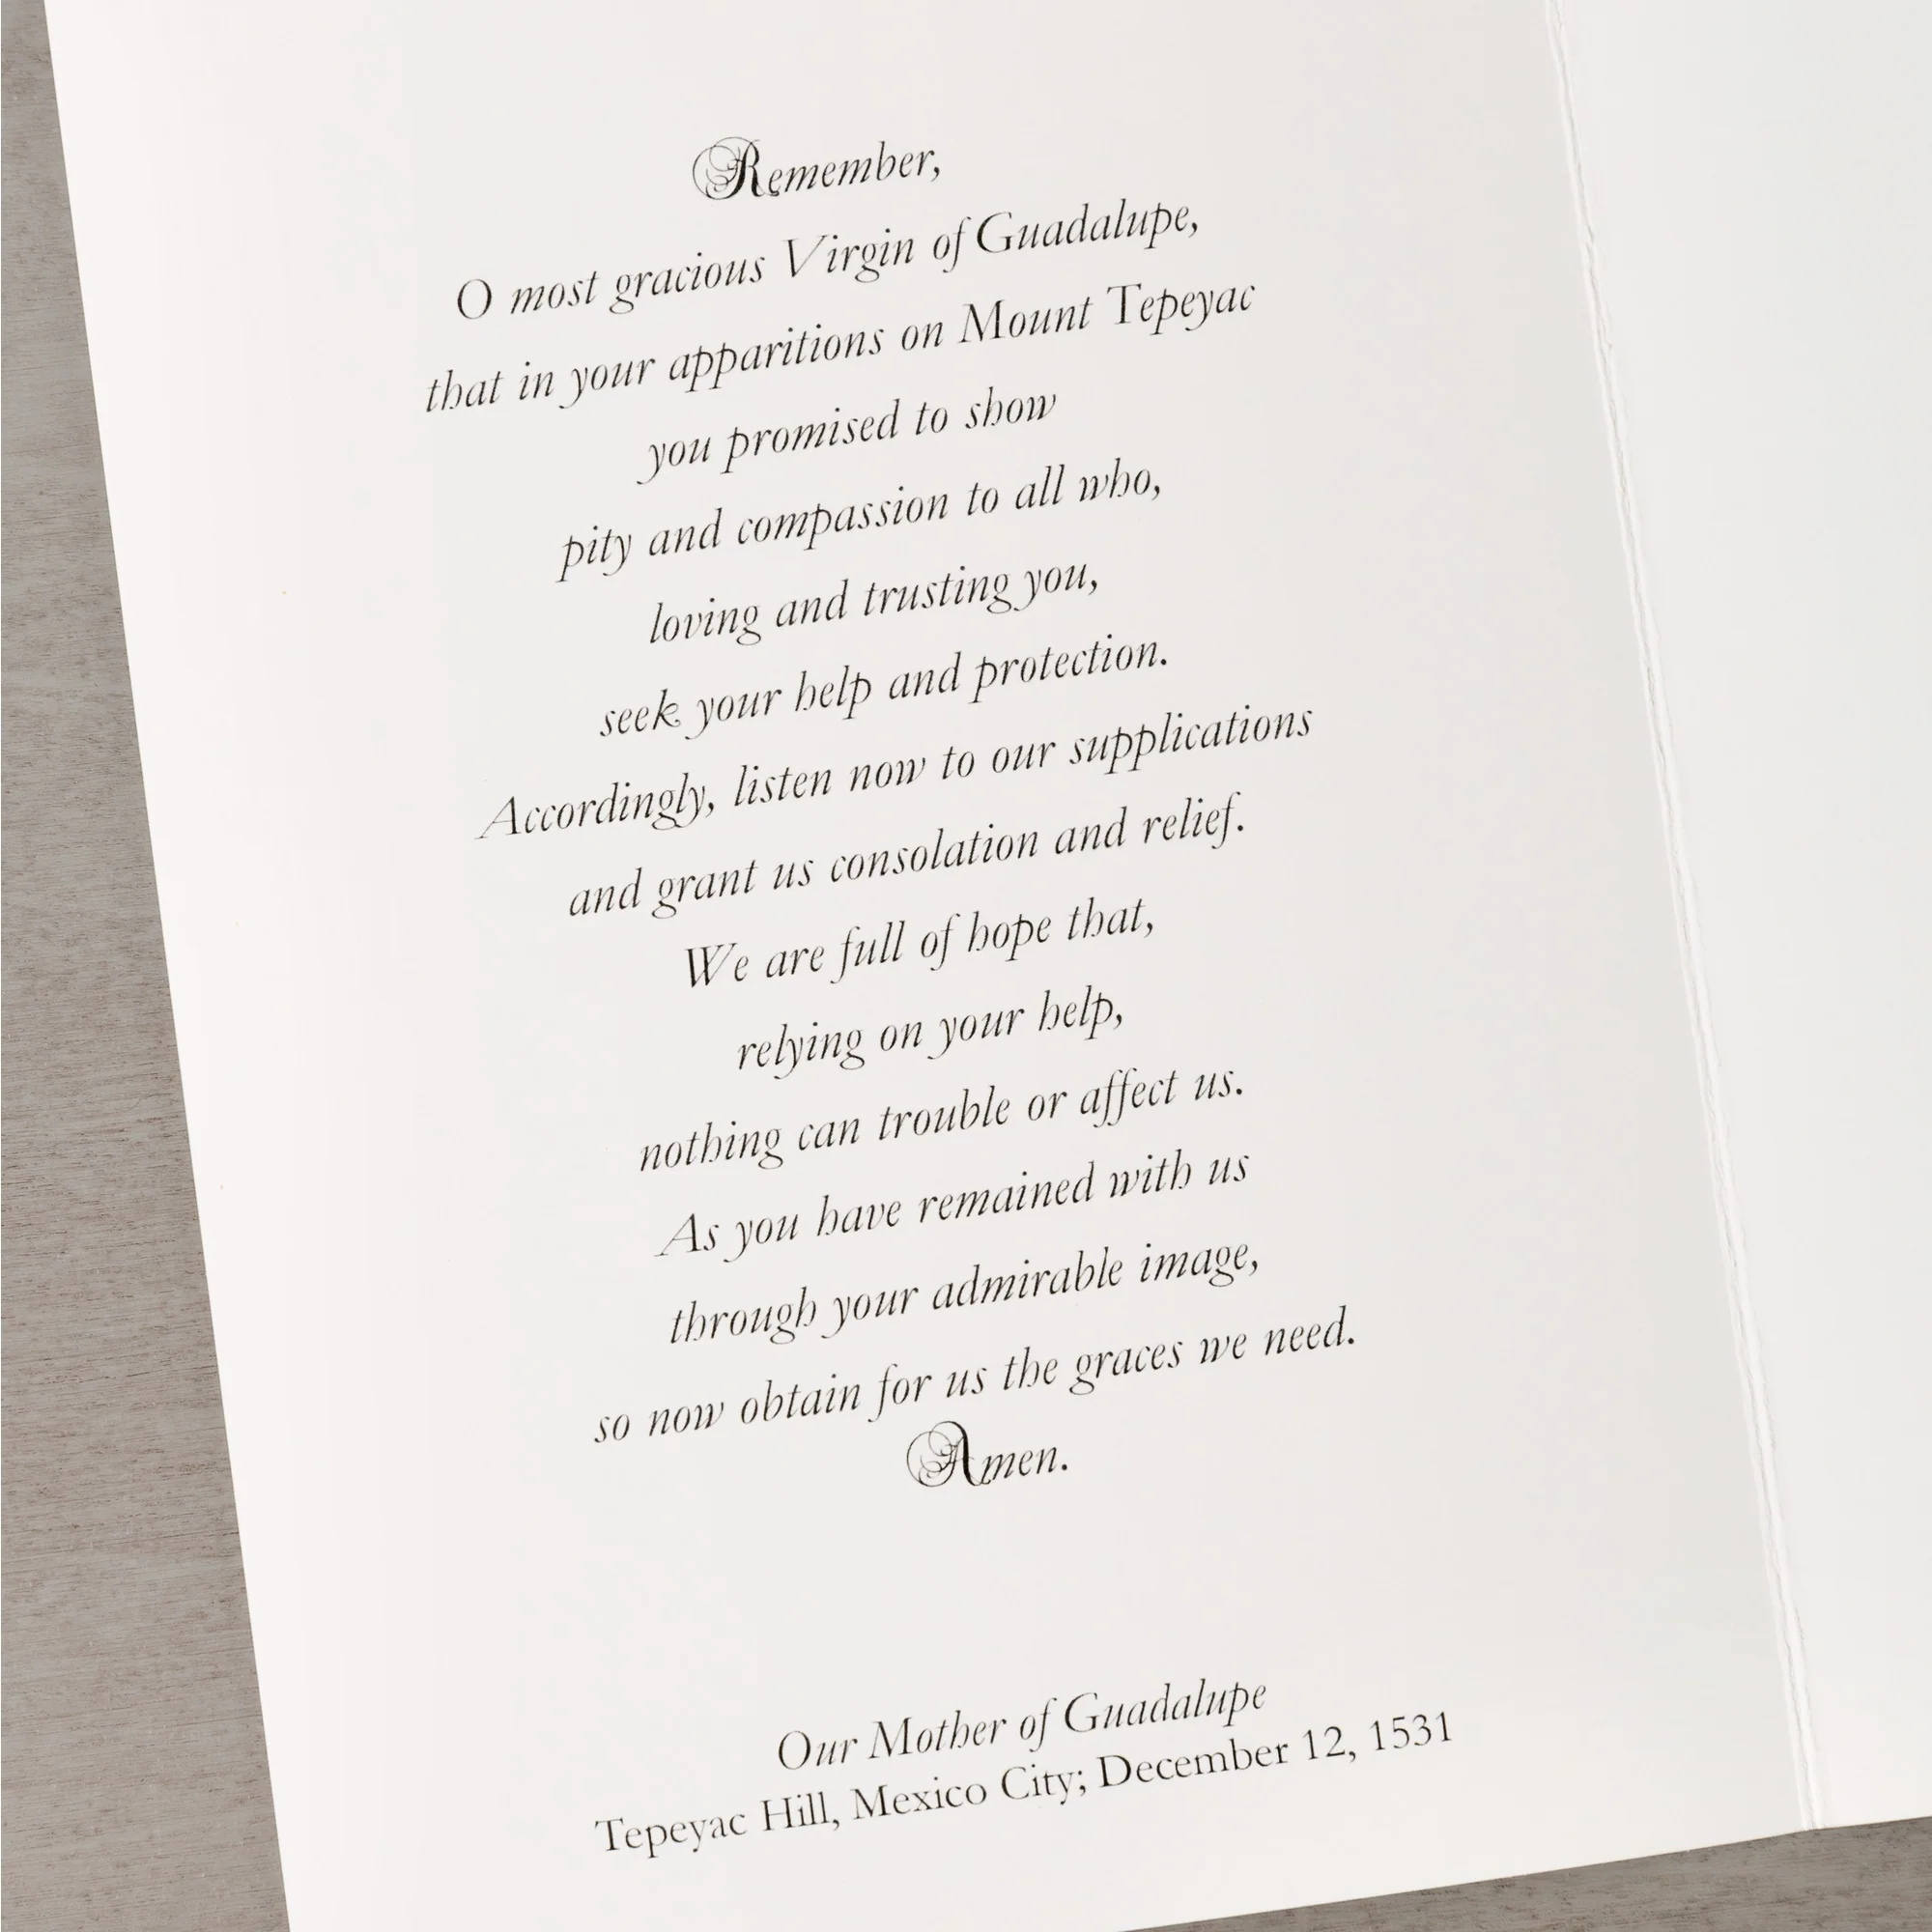 Remember,
O most gracious Virgin of Guadalupe,
that in your apparitions on Mount Tepeyac
you promised to show
pity and compassion to all who,
loving and trusting you,
seek your help and protection.
Accordingly, listen now to our supplications
and grant us consolation and relief.
We are full of hope that,
relying on your help,
nothing can trouble or affect us.
As you have remained with us
through your admirable image,
so now obtain for us the graces we need.
Amen.
Our Mother of Guadalupe
Tepeyac Hill, Mexico City; December 12, 1531